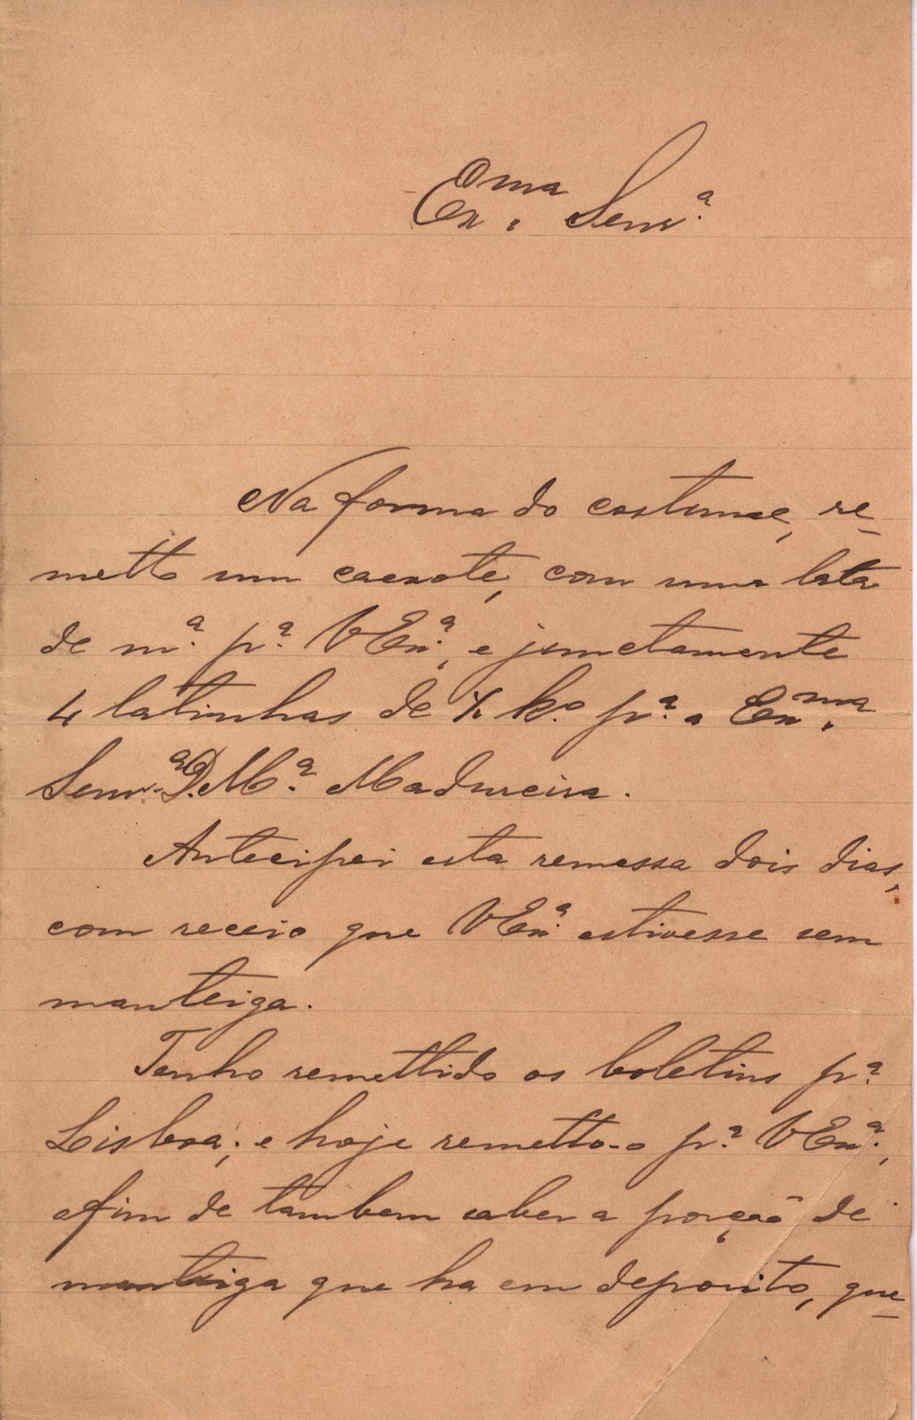 Ex.ma Senr.ª
Na forma do costume, re-
metto um caixote, com uma lata
de m.ª p.ª V Ex.ª, e junctamente
4 latinhas de ½ k.o p.ª a Ex.ma
Senr.ª D. M.ª Madureira.
Antecipei esta remessa dois dias,
com receio que V Ex.ª estivesse sem
manteiga.
Tenho remettido os boletins p.ª
Lisboa; e hoje remetto-o p.ª V Ex.ª,
afim de tambem saber a porção de
manteiga que ha em deposito, que-